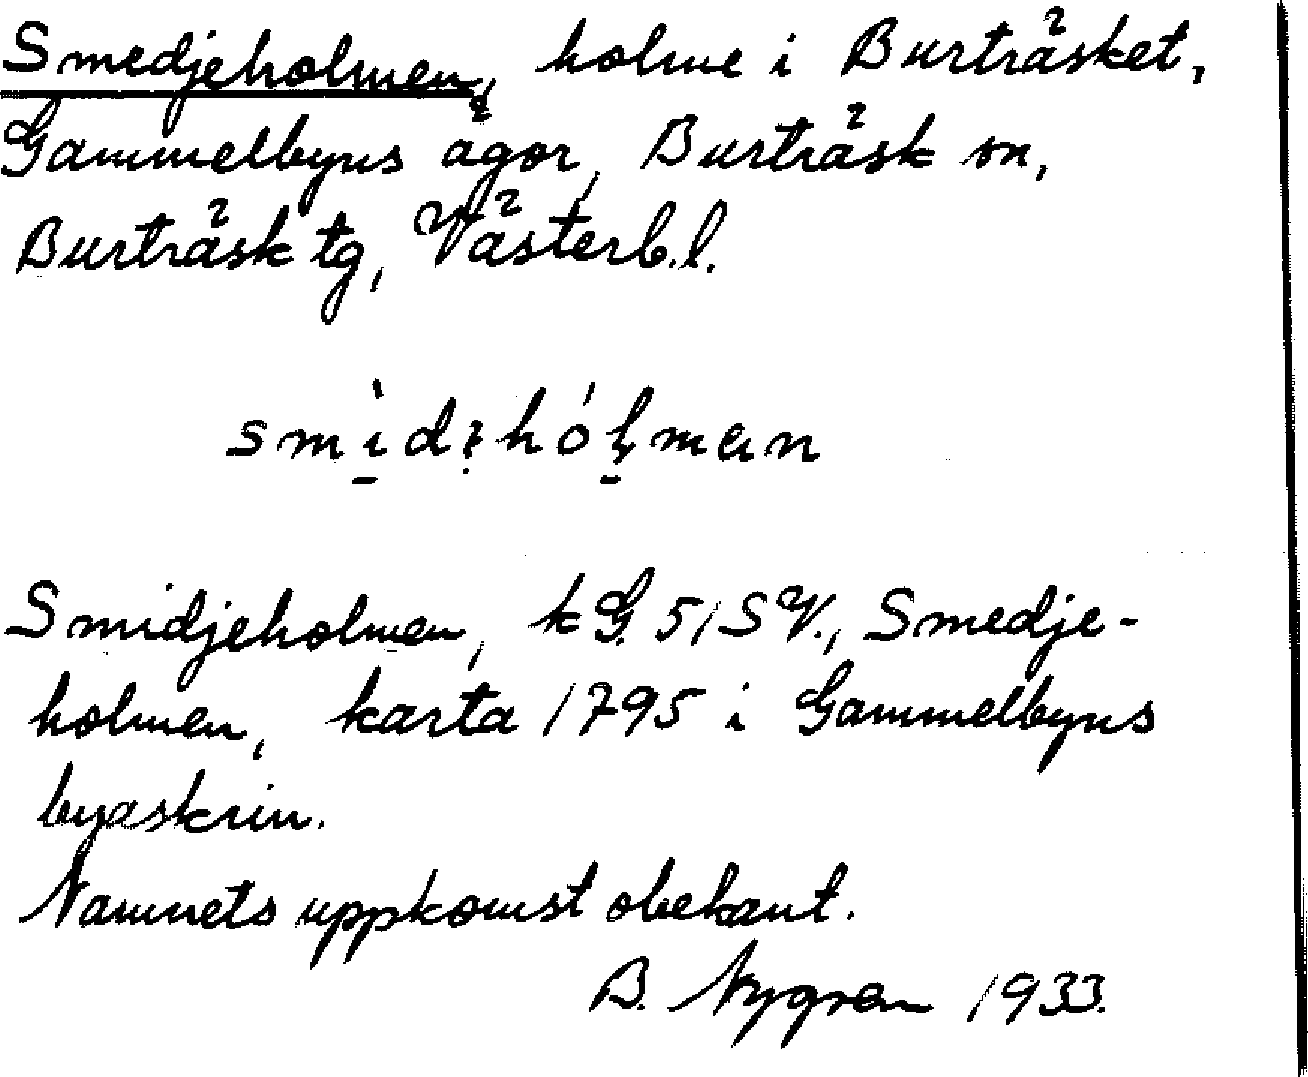 Smedjeholmen, holme i Burträsket,
Gammelbyns ägor, Burträsk sn,
Burträsk tg, Västerb.l.
Smidjeholmen, kG. 51SV., Smedje-
holmen, karta 1795 i Gammelbyns
byaskrin.
Namnets uppkomst obekant.
B. Nygren 1933.